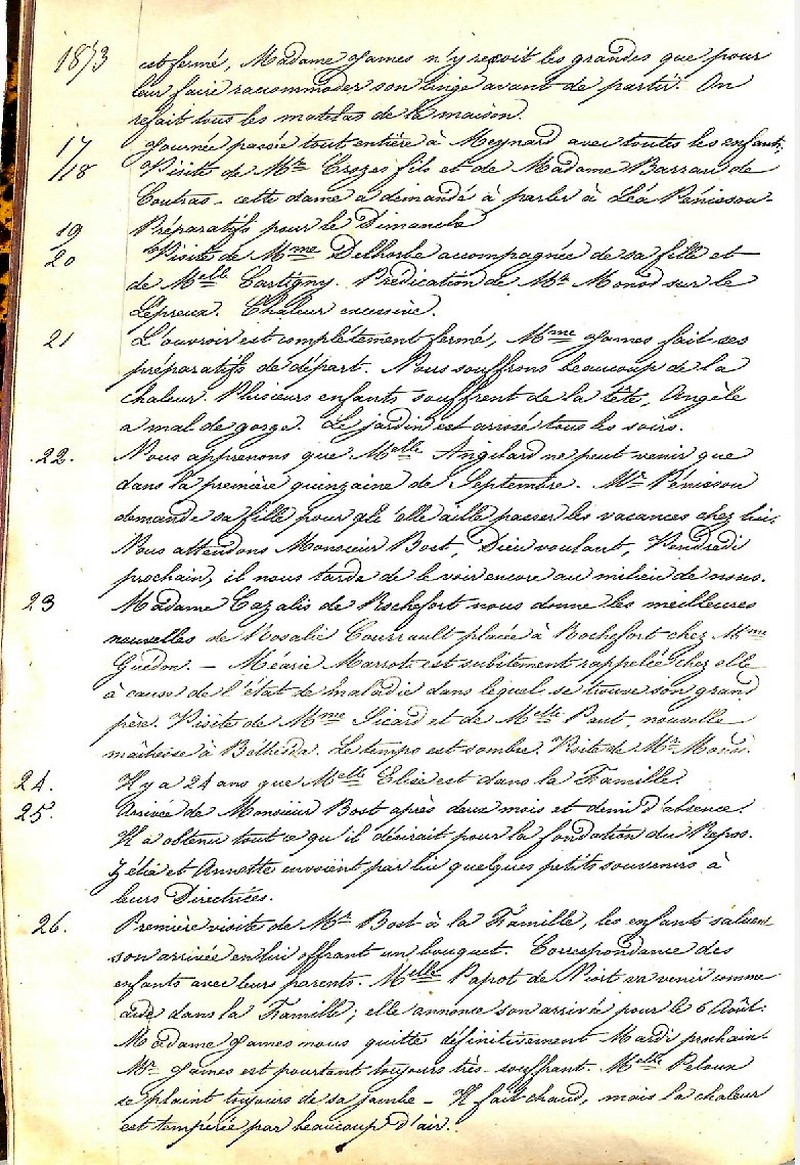 1873 est fermé, Madame James n'y reçoit les grandes que pour
leur faire raccommoder son linge avant de partir. On
refait tous les matelas de la maison.
17 Journée passée tout entière à Meynard avec toutes les enfants.
18 Visite de Mr Crozes fils et de Madame Barrau de
Coutras - cette dame a demandé à parler à Léa Pénissou.
19 Préparatifs pour le Dimanche
20 Visite de Mme Delhorbe accompagnée de sa fille et
de Melle Castigny. Prédication de Mr Monod sur le
Lépreux. Chaleur excessive.
21 L'ouvroir est complètement fermé, Mme James fait ses
préparatifs de départ. Nous souffrons beaucoup de la
chaleur. Plusieurs enfants souffrent de la tête, Angèle
a mal de gorge. Le jardin est arrosé tous les soirs.
22. Nous apprenons que Melle Angelard ne peut venir que
dans la première quinzaine de Septembre. Mr Pénissou
demande sa fille pour qu'elle aille passer les vacances chez lui.
Nous attendons Monsieur Bost, Dieu voulant, Vendredi
prochain, il nous tarde de le voir encore au milieu de nous.
23 Madame Cazalis de Rochefort nous donne les meilleures
nouvelles de Rosalie Courrault placée à Rochefort chez Mme
Guédon. - Méarie Marrot est subitement rappelée chez elle
à cause de l'état de maladie dans lequel se trouve son grand
père. Visite de Mme Sicard et de Melle Paut, nouvelle
maîtresse à Béthesda. Le temps est sombre. Visite de Mr
24. Il y a 24 ans que Melle Elise est dans la Famille.
25. Arrivée de Monsieur Bost après deux mois et demi d'absence.
Il a obtenu tout ce qu'il désirait pour la fondation du Repos.
Zélia et Annette envoient par lui quelques petits souvenirs à
leurs Directrices.
26. Première visite de Mr Bost à la Famille, les enfants saluent
son arrivée en lui offrant un bouquet. Correspondance des
enfants avec leurs parents. Melle Papot de Niort va venir comme
aide dans la Famille; elle annonce son arrivée pour le 6 Août.
Madame James nous quitte définitivement Mardi prochain.
Mr James est pourtant toujours très-souffrant. Melle Peloux
se plaint toujours de sa jambe - Il fait chaud, mais la chaleur
est tempérée par beaucoup d'air.